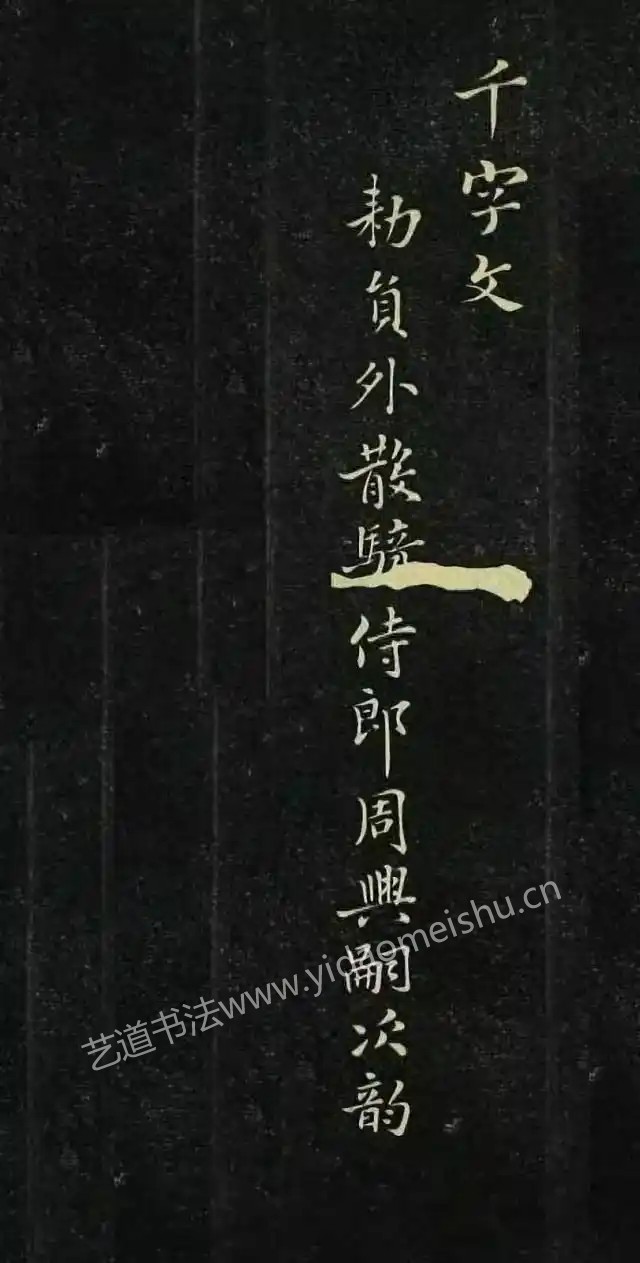 千字文
勑貟外散騎侍郎周興嗣次韵
艺道书法www.yidaomeishu.cn